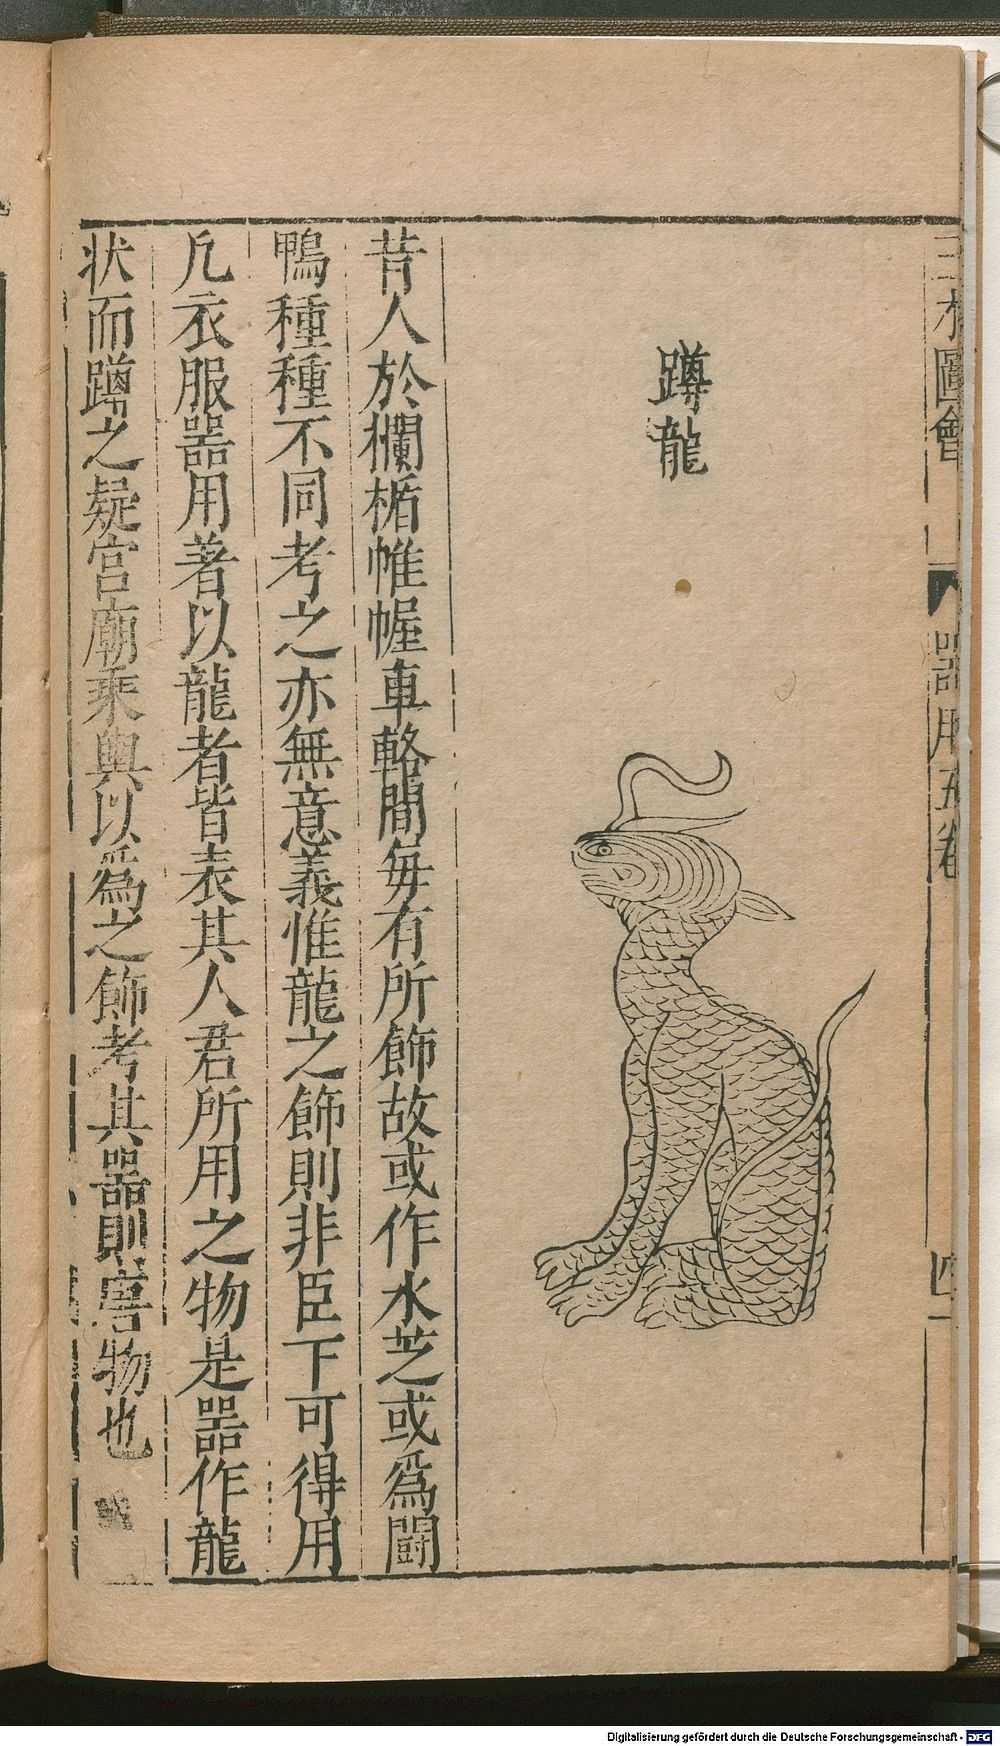 三才圖會
器用五卷
四一
蹲龍
昔人於欄楯帷幄車輅間每有所飾故或作水芝或爲鬪
鴨種種不同考之亦無意義惟龍之飾則非臣下可得用
凡衣服器用著以龍者皆表其人君所用之物是器作龍
状而蹲之疑宮廟乘輿以爲之飾考其器則物也
Digitalisierung gefördert durch die Deutsche Forschungsgemeinschaft - DFG